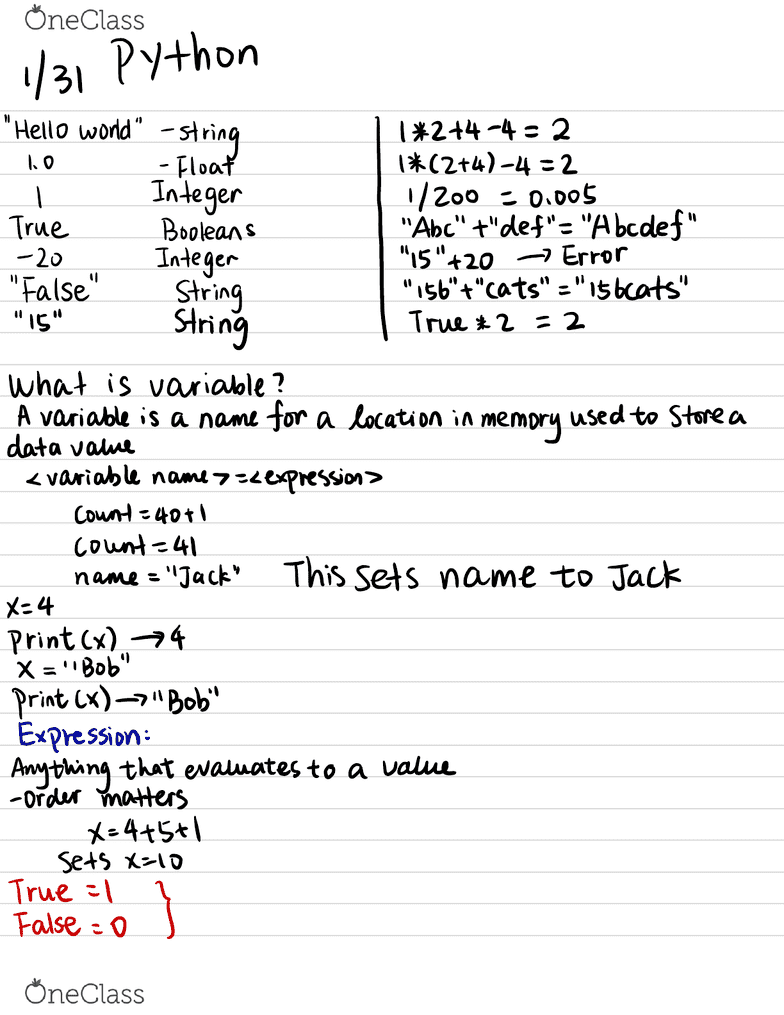 OneClass
1/31 Python
"Hello world" - string
1.0 - Float
1 Integer
True Booleans
-20 Integer
"False" String
"15" String
1*2+4-4 = 2
1*(2+4)-4 = 2
1/200 = 0.005
"Abc"+"def"="Abcdef"
"15"+20 → Error
"156"+"cats"="156cats"
True * 2 = 2
What is variable?
A variable is a name for a location in memory used to store a
data value
<variable name>=<expression>
Count=40+1
Count=41
name="Jack" This sets name to Jack
X=4
Print(x) → 4
X="Bob"
Print(x) → "Bob"
Expression:
Anything that evaluates to a value
-order matters
x=4+5+1
Sets x=10
True =1 }
False = 0
OneClass